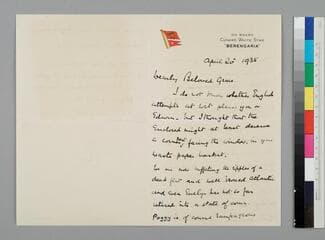 ON BOARD
CUNARD WHITE STAR
"BERENGARIA"
April 20th 1935
Dearly Beloved Gens.
I do not know whether English
attempts at wit please you or
Edwin. But I thought that the
Enclosed might at least deserve
a corner facing the window, in your
waste paper basket.
We are now suffering the ripples of a
dead flat and well ironed Atlantic
and even Evelyn has not so far
retired into a state of coma.
Peggy is of course rampageous